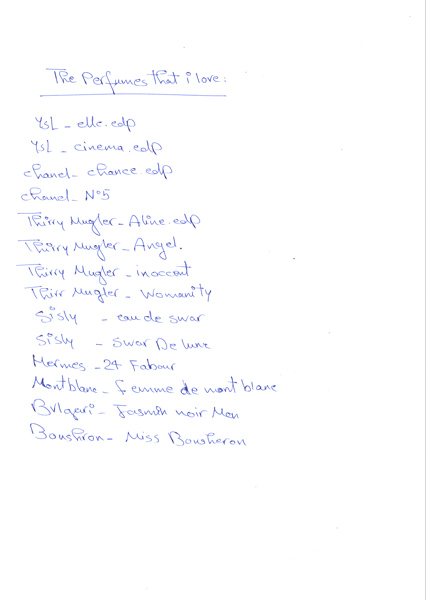 The Perfumes that i love:
YSL - elle.edp
YSL - cinema.edp
chanel - chance.edp
chanel - N°5
Thirry Mugler - Aline.edp
Thirry Mugler - Angel.
Thirry Mugler - inoccent
Thirr Mugler - Womanity
Sisly - eau de swar
Sisly - swar De lune
Hermes - 24 Fabour
Montblanc - femme de mont blanc
Bvlgari - Jasmin noir Mon
Boushron - Miss Bousheron